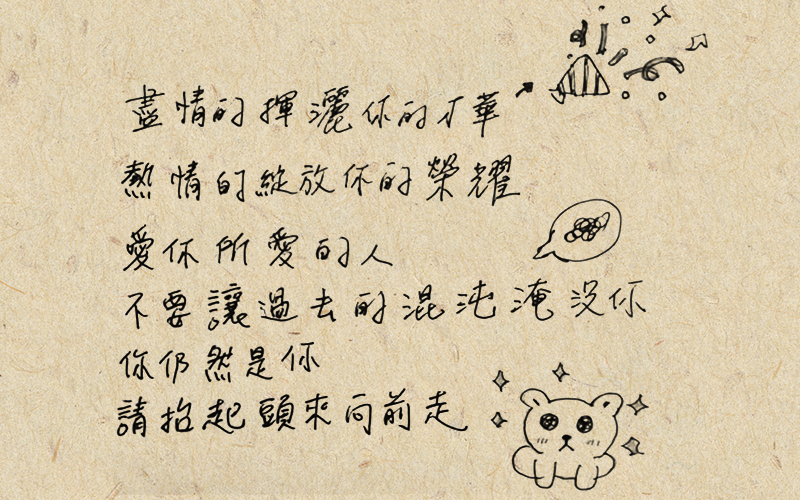 盡情的揮灑你的才華
熱情的綻放你的榮耀
愛你所愛的人
不要讓過去的混沌淹沒你
你仍然是你
請抬起頭來向前走